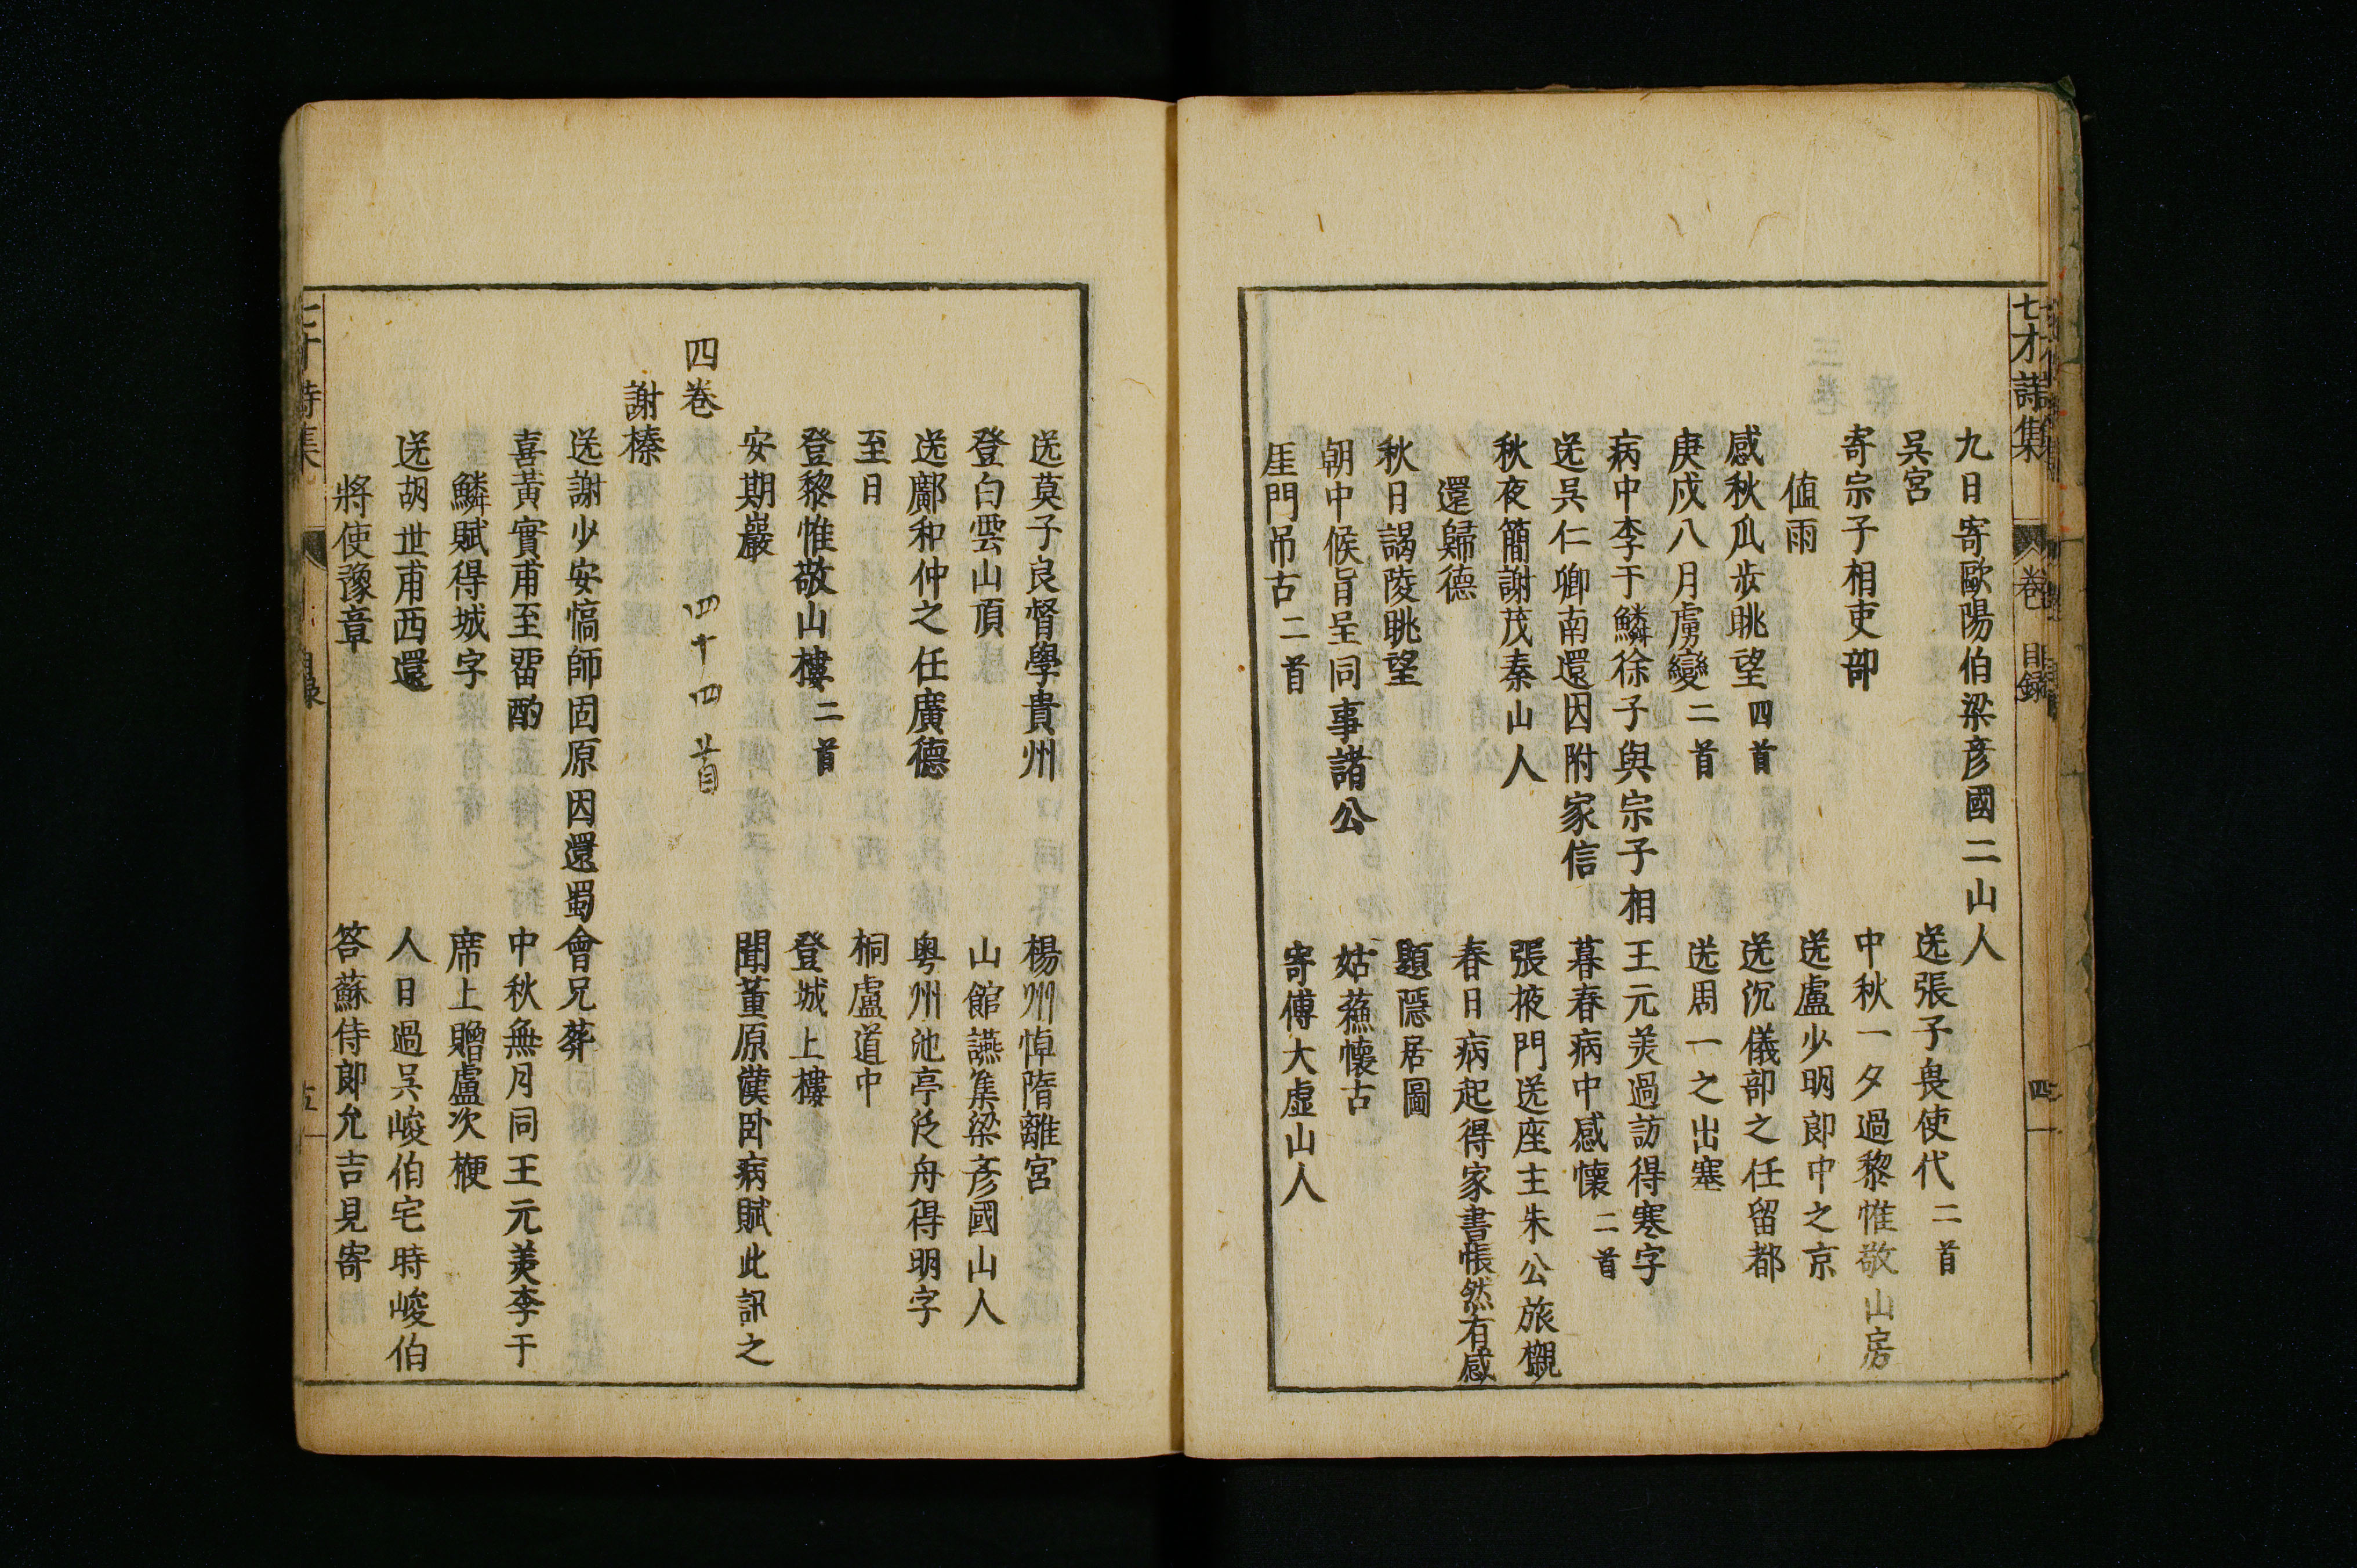 七才詩集 卷 目錄 四
九日寄歐陽伯梁彦國二山人
吳宮 送張子畏使代二首
寄宗子相吏部 中秋一夕過黎惟敬山房
值雨 送盧少明郎中之京
感秋瓜步眺望四首 送沉儀部之任留都
庚戍八月虜變二首 送周一之出塞
病中李于鱗徐子與宗子相 王元美過訪得寒字
送吳仁卿南還因附家信 暮春病中感懷二首
秋夜簡謝茂秦山人 張掖門送座主朱公旅櫬
還歸德 春日病起得家書悵然有感
秋日謁陵眺望 題隱居圖
朝中候旨呈同事諸公 姑蘓懷古
厓門吊古二首 寄傅大虛山人
送莫子良督學貴州 楊州悼隋離宮
登白雲山頂 山館讌集梁彥國山人
送鄺和仲之任廣德 粤州池亭泛舟得明字
至日 桐盧道中
登黎惟敬山樓二首 登城上樓
安期巖 聞董原漢卧病賦此訊之
四卷 四十四首
謝榛
送謝少安犒師固原因還蜀會兄葬
喜黃實甫至畱酌 中秋無月同王元美李于
鱗賦得城字 席上贈盧次楩
送胡世甫西還 人日過吳峻伯宅時峻伯
將使豫章 答蘇侍郎允吉見寄
七才詩集 目錄 五